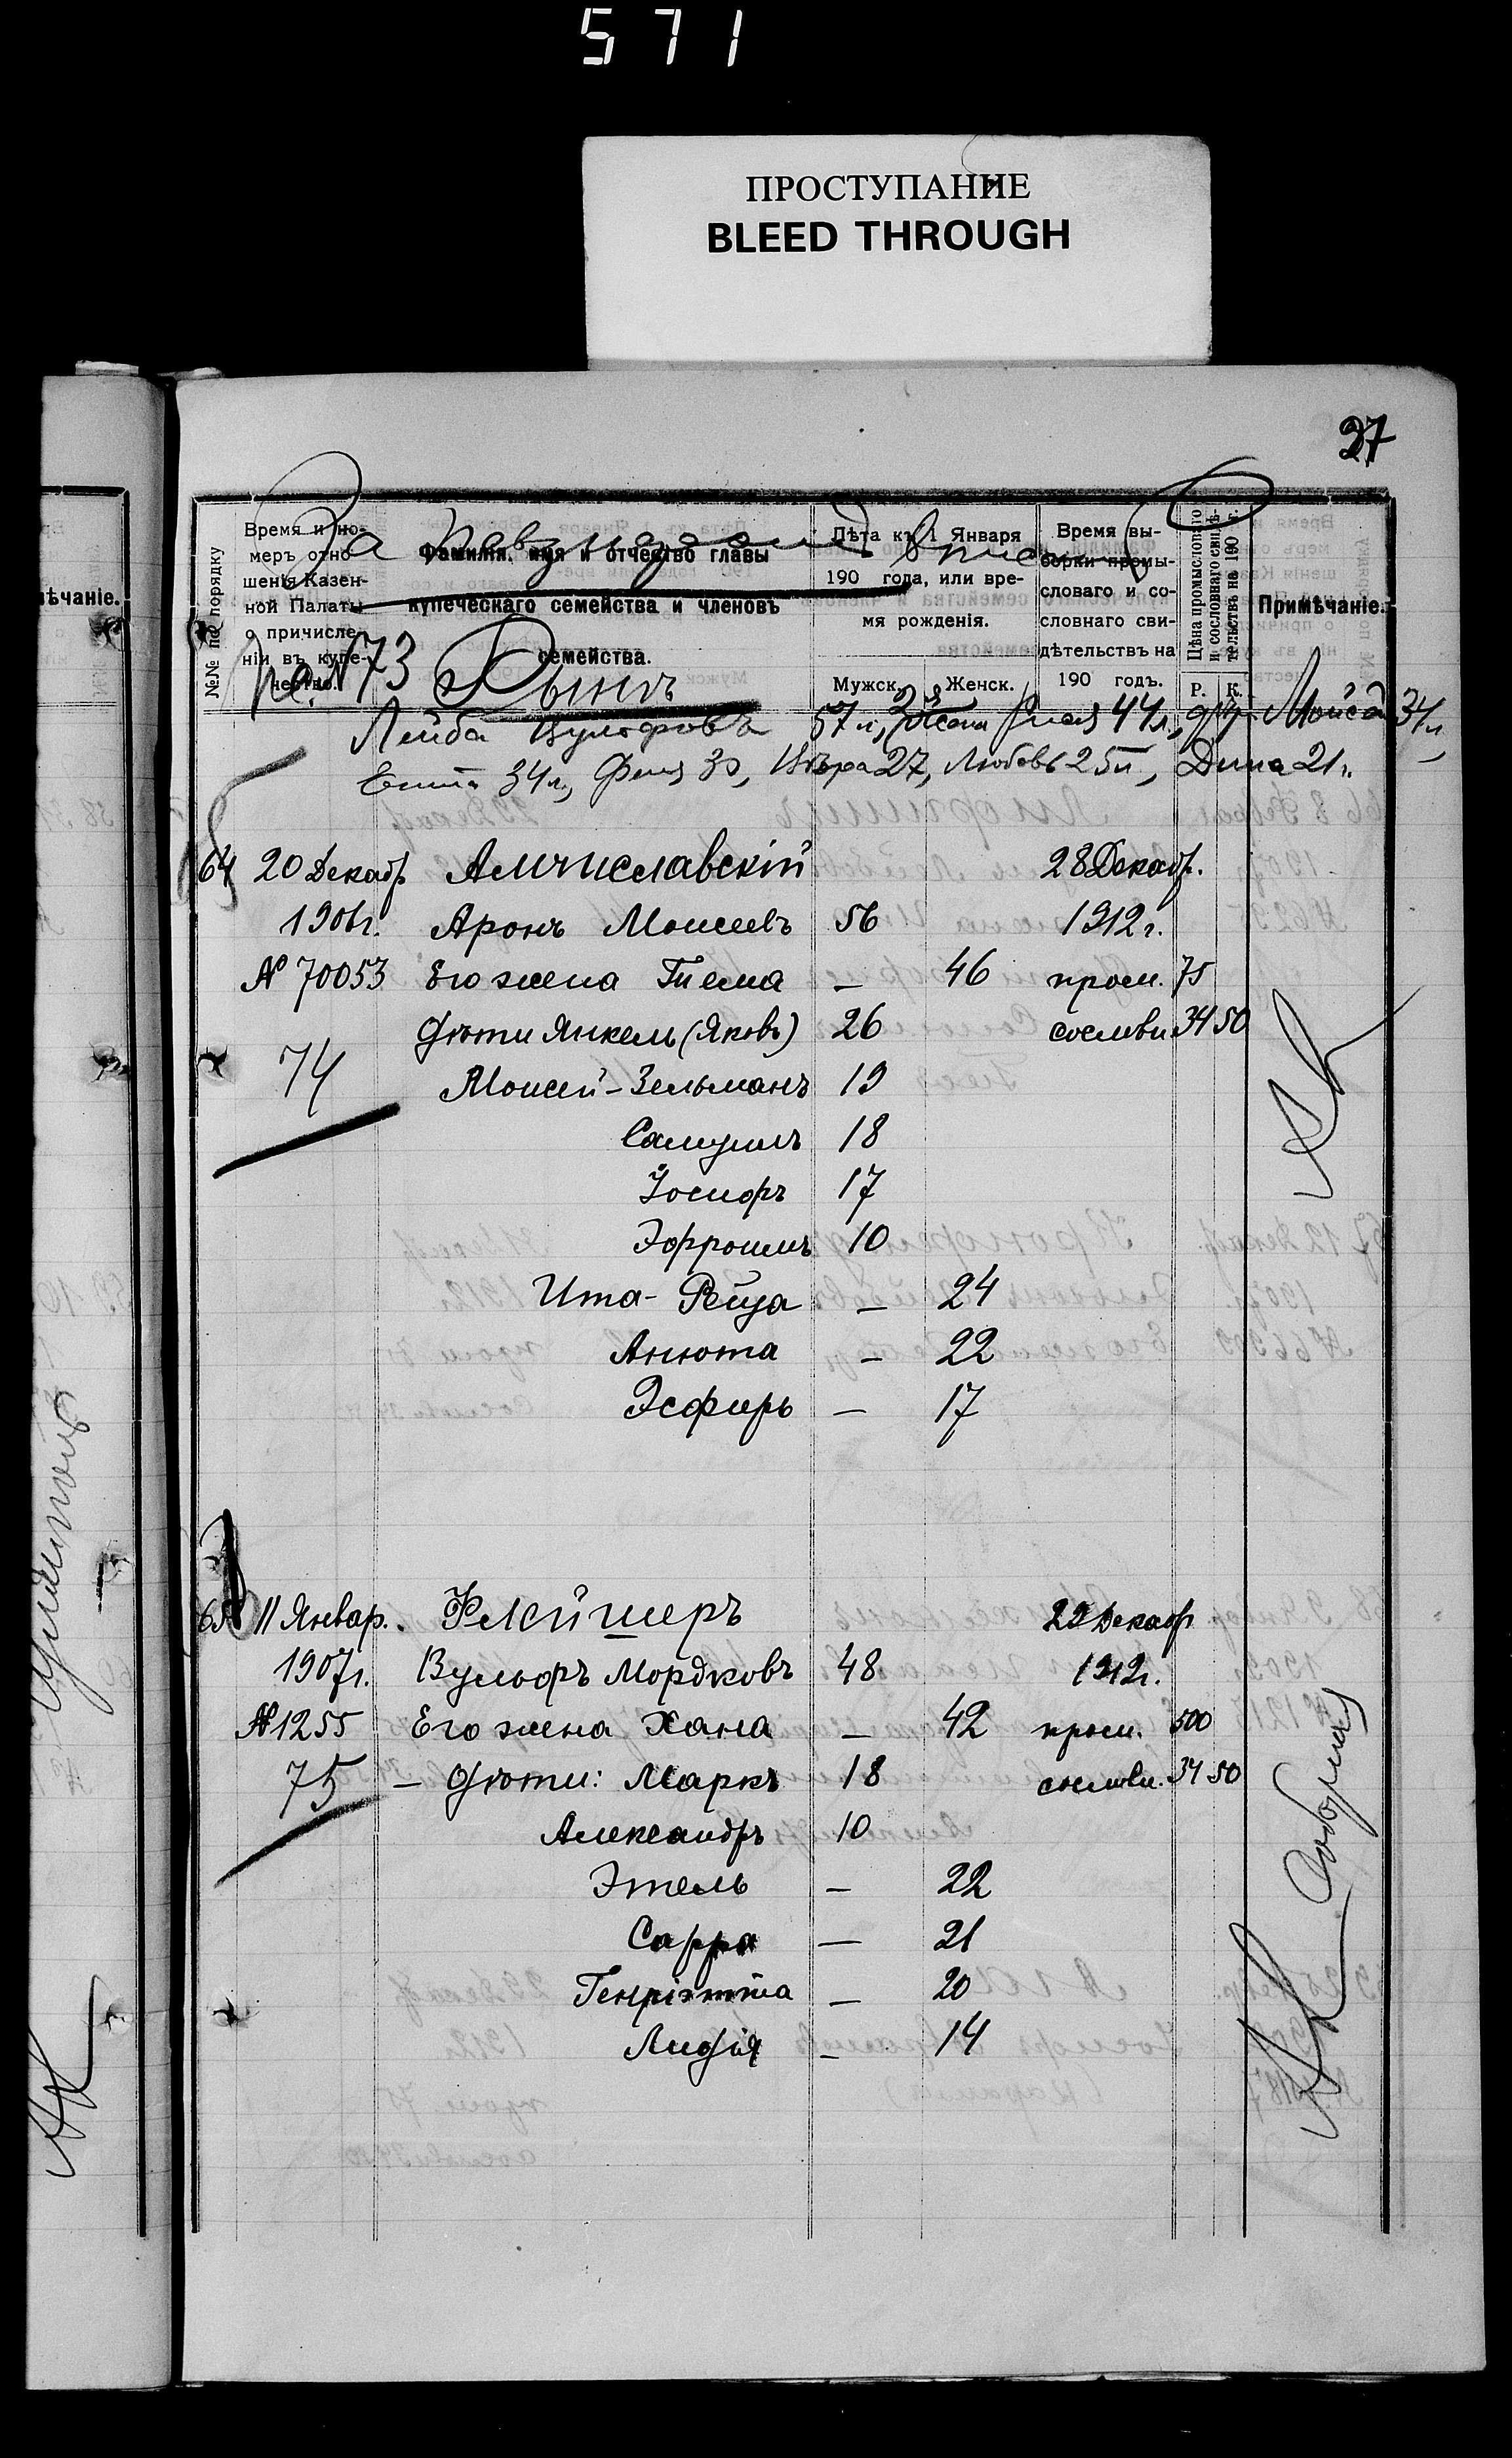 571
ПРОСТУПАНИЕ
BLEED THROUGH
27
ѣчаніе.
№№ по порядку
Время и но-
меръ отно-
шенія Казен-
ной Палаты
о причисле-
ніи въ купе-
чество.
Фамилія, имя и отчество главы
купеческаго семейства и членовъ
семейства.
Лѣта къ 1 Января
190 года, или вре-
мя рожденія.
Мужск. Женск.
Время вы-
борки промы-
словаго и со-
словнаго сви-
дѣтельствъ на
190 годъ.
Цѣна промысловаго
и сословнаго свидѣ-
тельствъ на 190 г.
Р. К.
Примѣчаніе.
За
№ 73
Лейба Вульфовъ 57 л., жена 44 л., Мойсей 34 л.
34 л., Феня 30, 27, Любовь 25 л., Дина 21 г.
64 20 Декабр. Амчиславскій 28 Декабр.
1906 г. Аронъ Моисеевъ 56 1912 г.
№ 70053 Его жена — 46 пром. 75
Дѣти Янкель (Яковъ) 26 сословн. 34 50
74 Моисей-Зельманъ 19
Самуилъ 18
Іосифъ 17
Эфроимъ 10
Ита-Рейза — 24
Анюта — 22
Эсфирь — 17
65 11 Январ. Флейшеръ 29 Декабр
1907 г. Вульфъ Мордковъ 48 1912 г.
№ 1255 Его жена Хана — 42 пром. 500
75 — Дѣти: Маркъ 18 сословн. 34 50
Александръ 10
Этель — 22
Сарра — 21
Генріэтта — 20
Лидія — 14